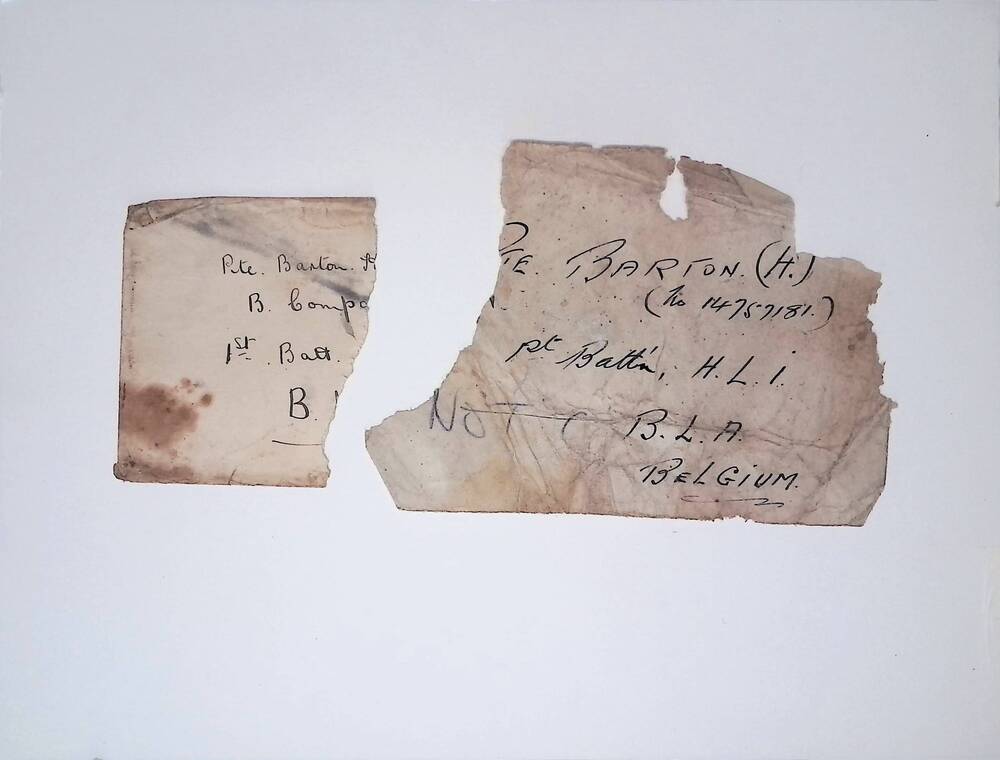 Pte. Barton.
B. Compa
1st Batt.
B.
PTE. BARTON. (H.)
(No 14757181.)
1st Batt'n, H.L.I.
NOT
B.L.A.
BELGIUM.